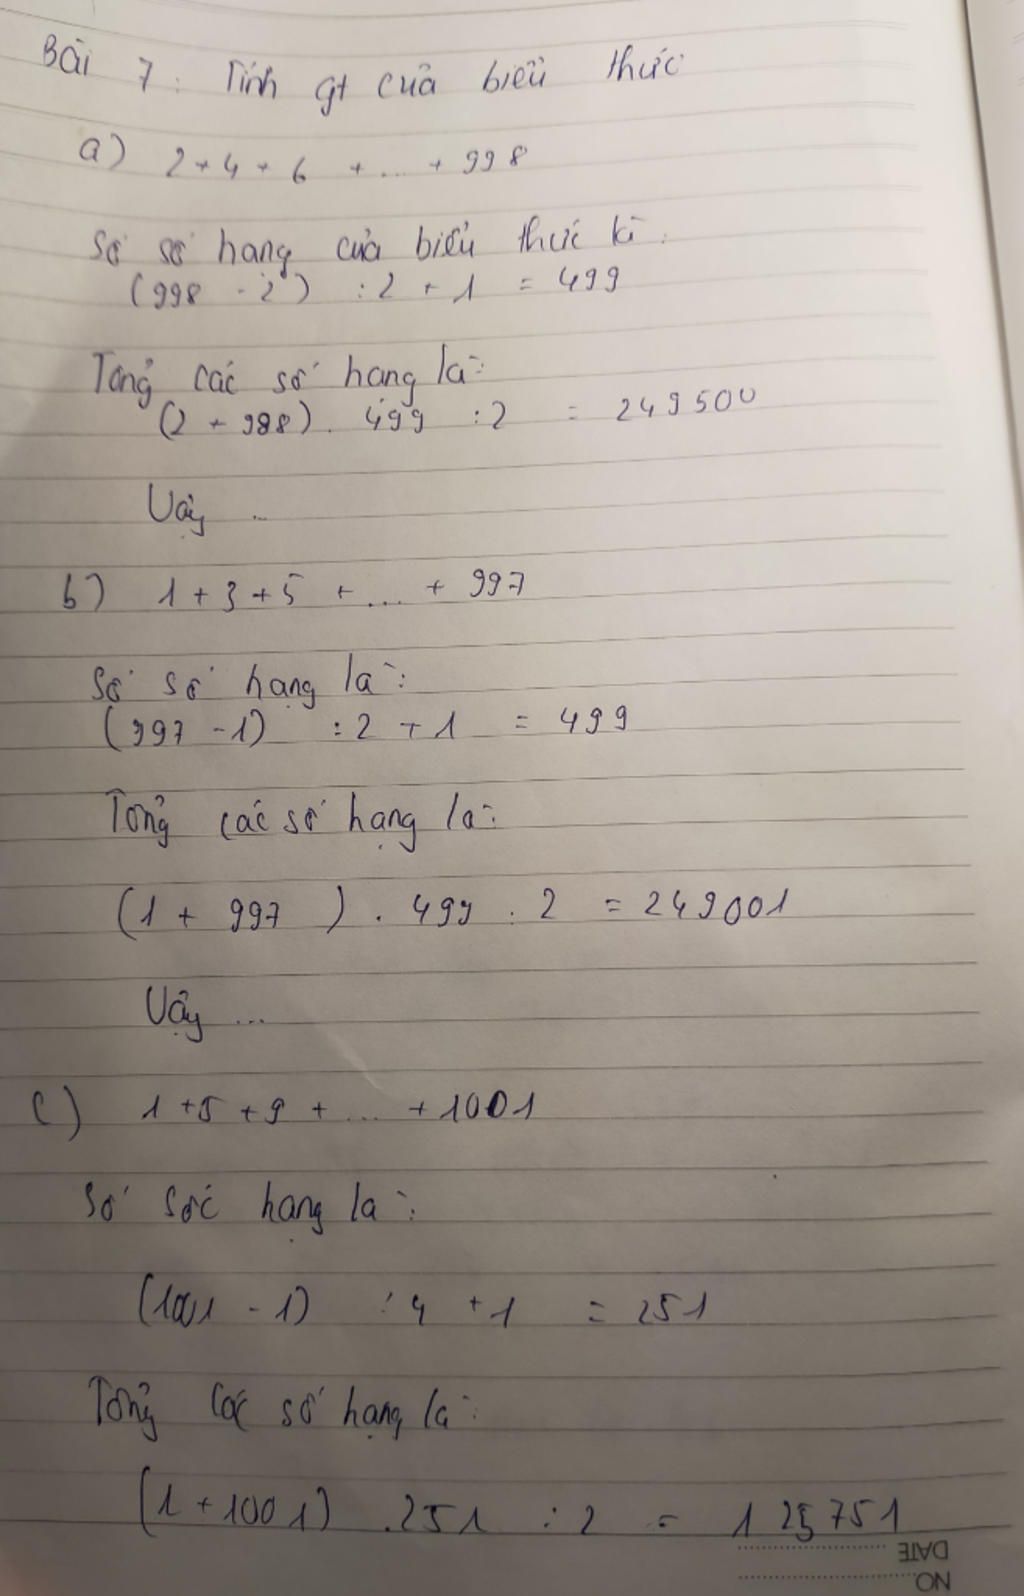 Bài 7: Tính gt của biểu thức
a) 2 + 4 + 6 + ... + 998
Số số hang của biểu thức là:
(998 - 2) : 2 + 1 = 499
Tổng các số hang là:
(2 + 998) . 499 : 2 = 249500
Vậy ..
b) 1 + 3 + 5 + ... + 997
Số số hạng là:
(997 - 1) : 2 + 1 = 499
Tổng các số hạng là:
(1 + 997) . 499 : 2 = 249001
Vậy ...
c) 1 + 5 + 9 + ... + 1001
Số số hạng là:
(1001 - 1) : 4 + 1 = 251
Tổng các số hạng là:
(1 + 1001) . 251 : 2 = 125751
DATE
NO.